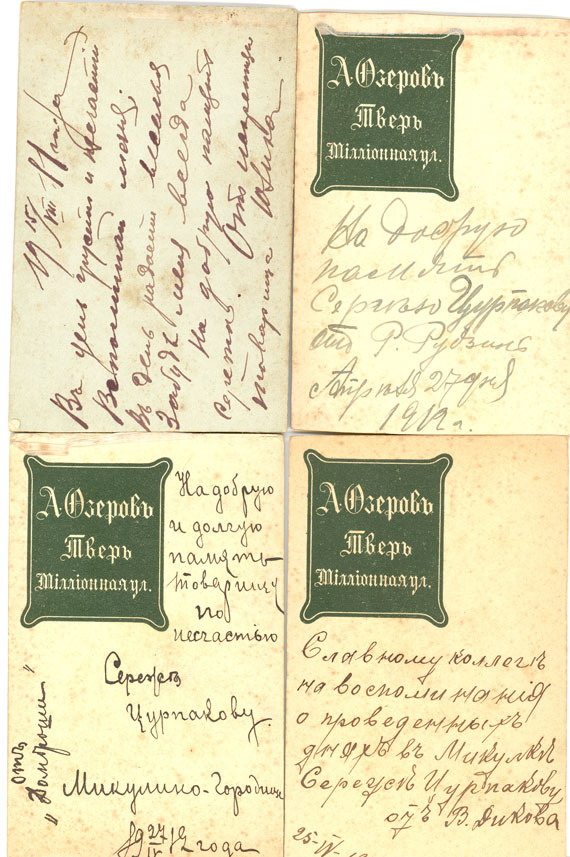 19 15/VIII 
Въ день грусти и несчастій
Вспоминай меня,
Въ день радости веселья
Забудь меня всегда
На добрую память
Сережѣ. Отъ
товарища
А. Озеровъ
Тверь
Милліонная ул.
На добрую
память
Сергѣю Цурпакову
отъ Р. Рудзинъ
Апрѣля 27 дня
1912 г.
А. Озеровъ
Тверь
Милліонная ул.
На добрую
и долгую
память
товарищу
по
несчастью
Сережѣ
Цурпакову.
отъ
Микулино-Городище
19 27/IV 12 года
А. Озеровъ
Тверь
Милліонная ул.
Славному коллегѣ
на воспоминанія
о проведенныхъ
дняхъ въ Микулкѣ
Сережѣ Цурпакову
отъ В. Дикова
25-IV-12